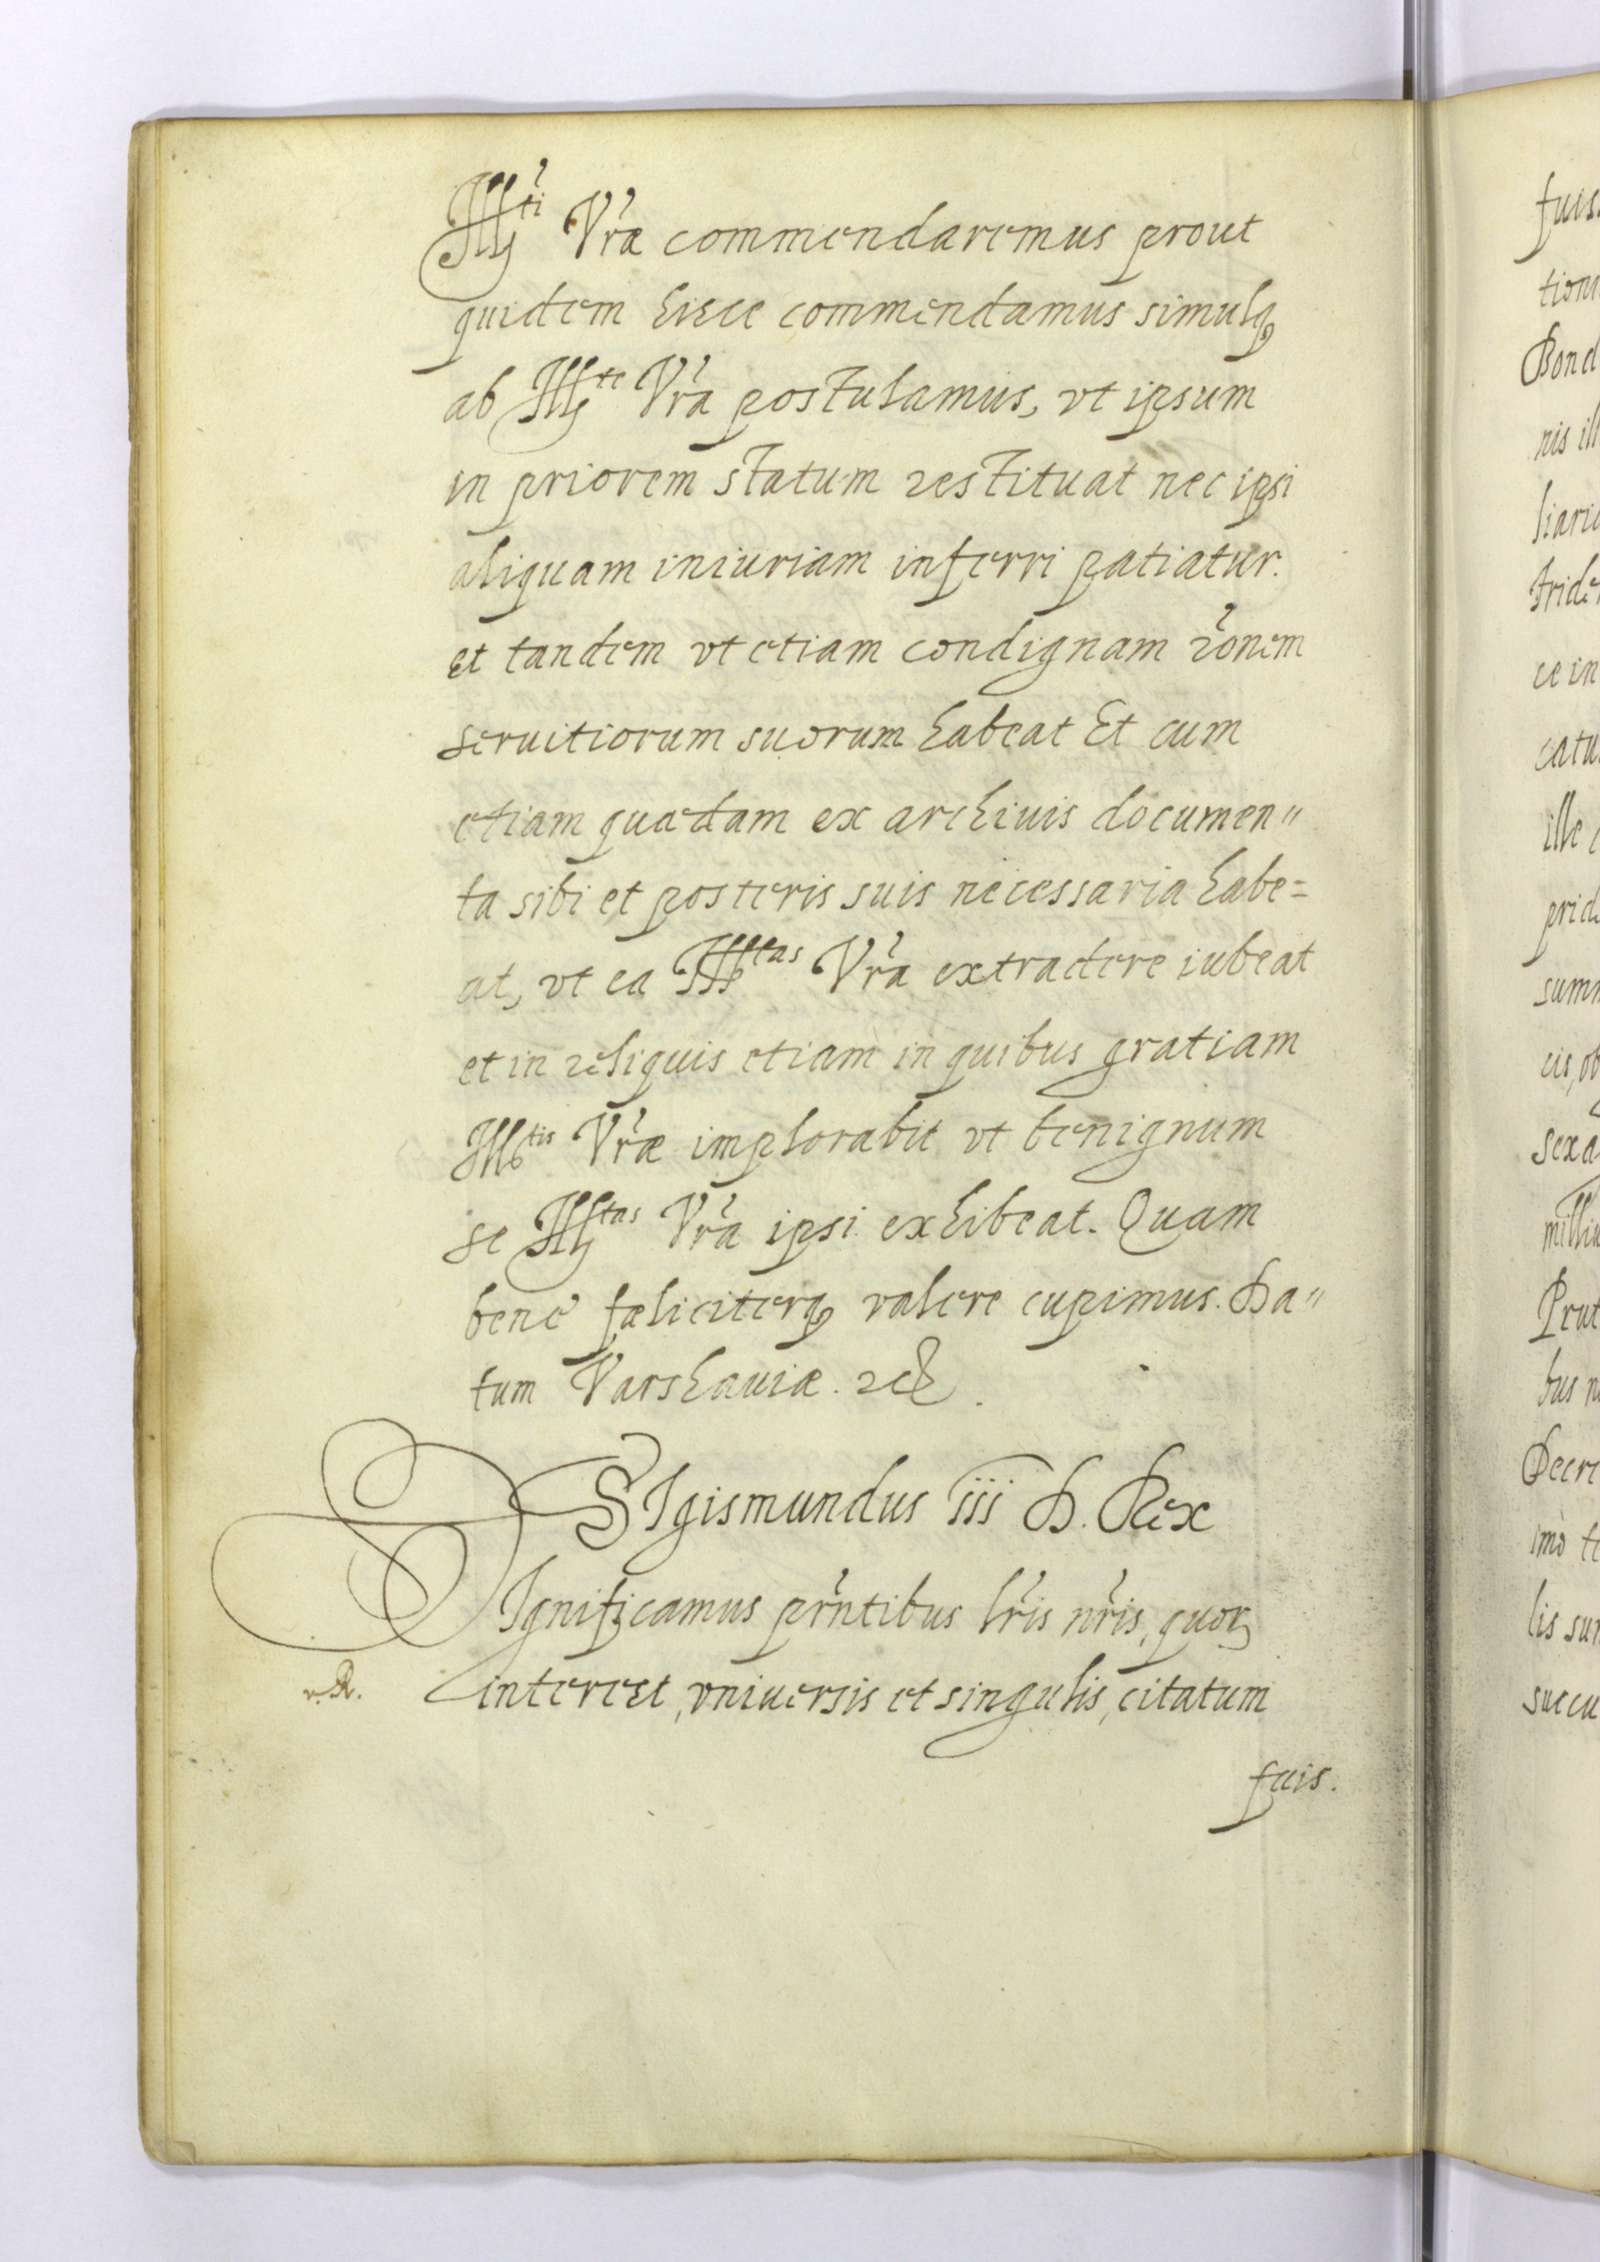 Illti Vrae commendaremus prout
quidem hisce commendamus simulq
ab Illte Vra postulamus, vt ipsum
in priorem statum restituat nec ipsi
aliquam iniuriam inferri patiatur.
et tandem vt etiam condignam ronem
seruitiorum suorum habeat Et cum
etiam quaedam ex archiuis documen"
ta sibi et posteris suis necessaria habe=
at, vt ea Illtas Vra extradere iubeat
et in reliquis etiam in quibus gratiam
Illtis Vrae implorabit vt benignum
se Illtas Vra ipsi exhibeat. Quam
bene faeliciterq valere cupimus. Da"
tum Varshauiae. etc.
SIgismundus iii D. Rex
SIgnificamus prntibus lris nris, quor
interest, vniuersis et singulis, citatum
fuis.
fuis
Bond
nis ill
ce in
catu
ille
summ
cis, ob
sexa
bus
Decre
imò
lis sun
succu